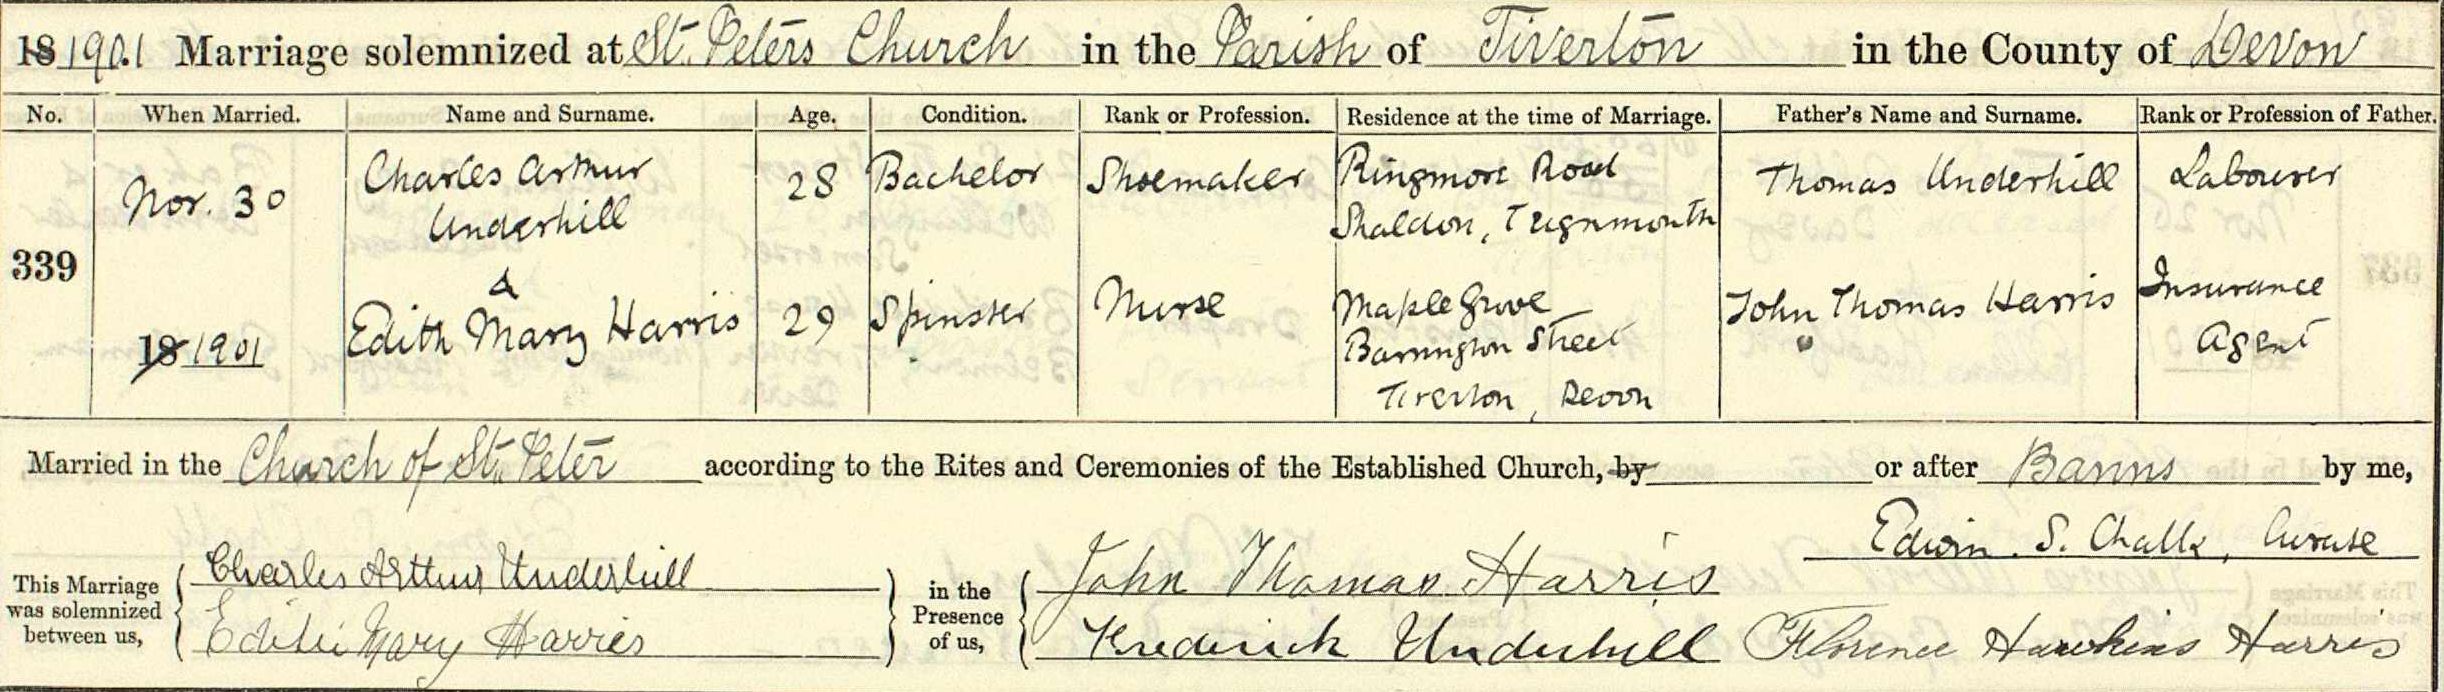 18 1901 Marriage solemnized at St. Peters Church in the Parish of Tiverton in the County of Devon
No. When Married. Name and Surname. Age. Condition. Rank or Profession. Residence at the time of Marriage. Father's Name and Surname. Rank or Profession of Father.
339
Nov. 30
18 1901
Charles Arthur
Underhill
&
Edith Mary Harris
28
29
Bachelor
Spinster
Shoemaker
Nurse
Ringmore Road
Shaldon, Teignmouth
Maple Grove
Barrington Street
Tiverton, Devon
Thomas Underhill
John Thomas Harris
Labourer
Insurance
Agent
Married in the Church of St. Peter according to the Rites and Ceremonies of the Established Church, by or after Banns by me,
Edwin. S. Chalk, Curate
This Marriage
was solemnized
between us,
Charles Arthur Underhill
Edith Mary Harris
in the
Presence
of us,
John Thomas Harris
Frederick Underhill Florence Hawkins Harris